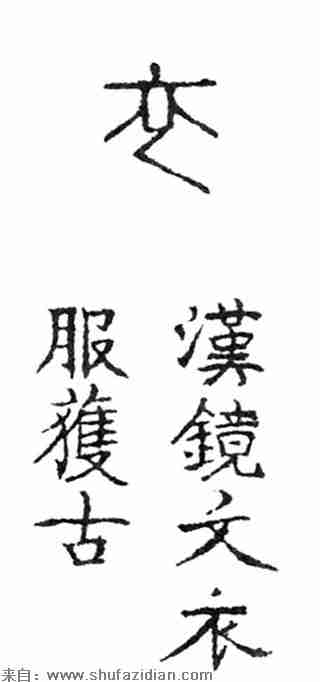 衣
漢鏡文衣
服獲古
来自：www.shufazidian.com